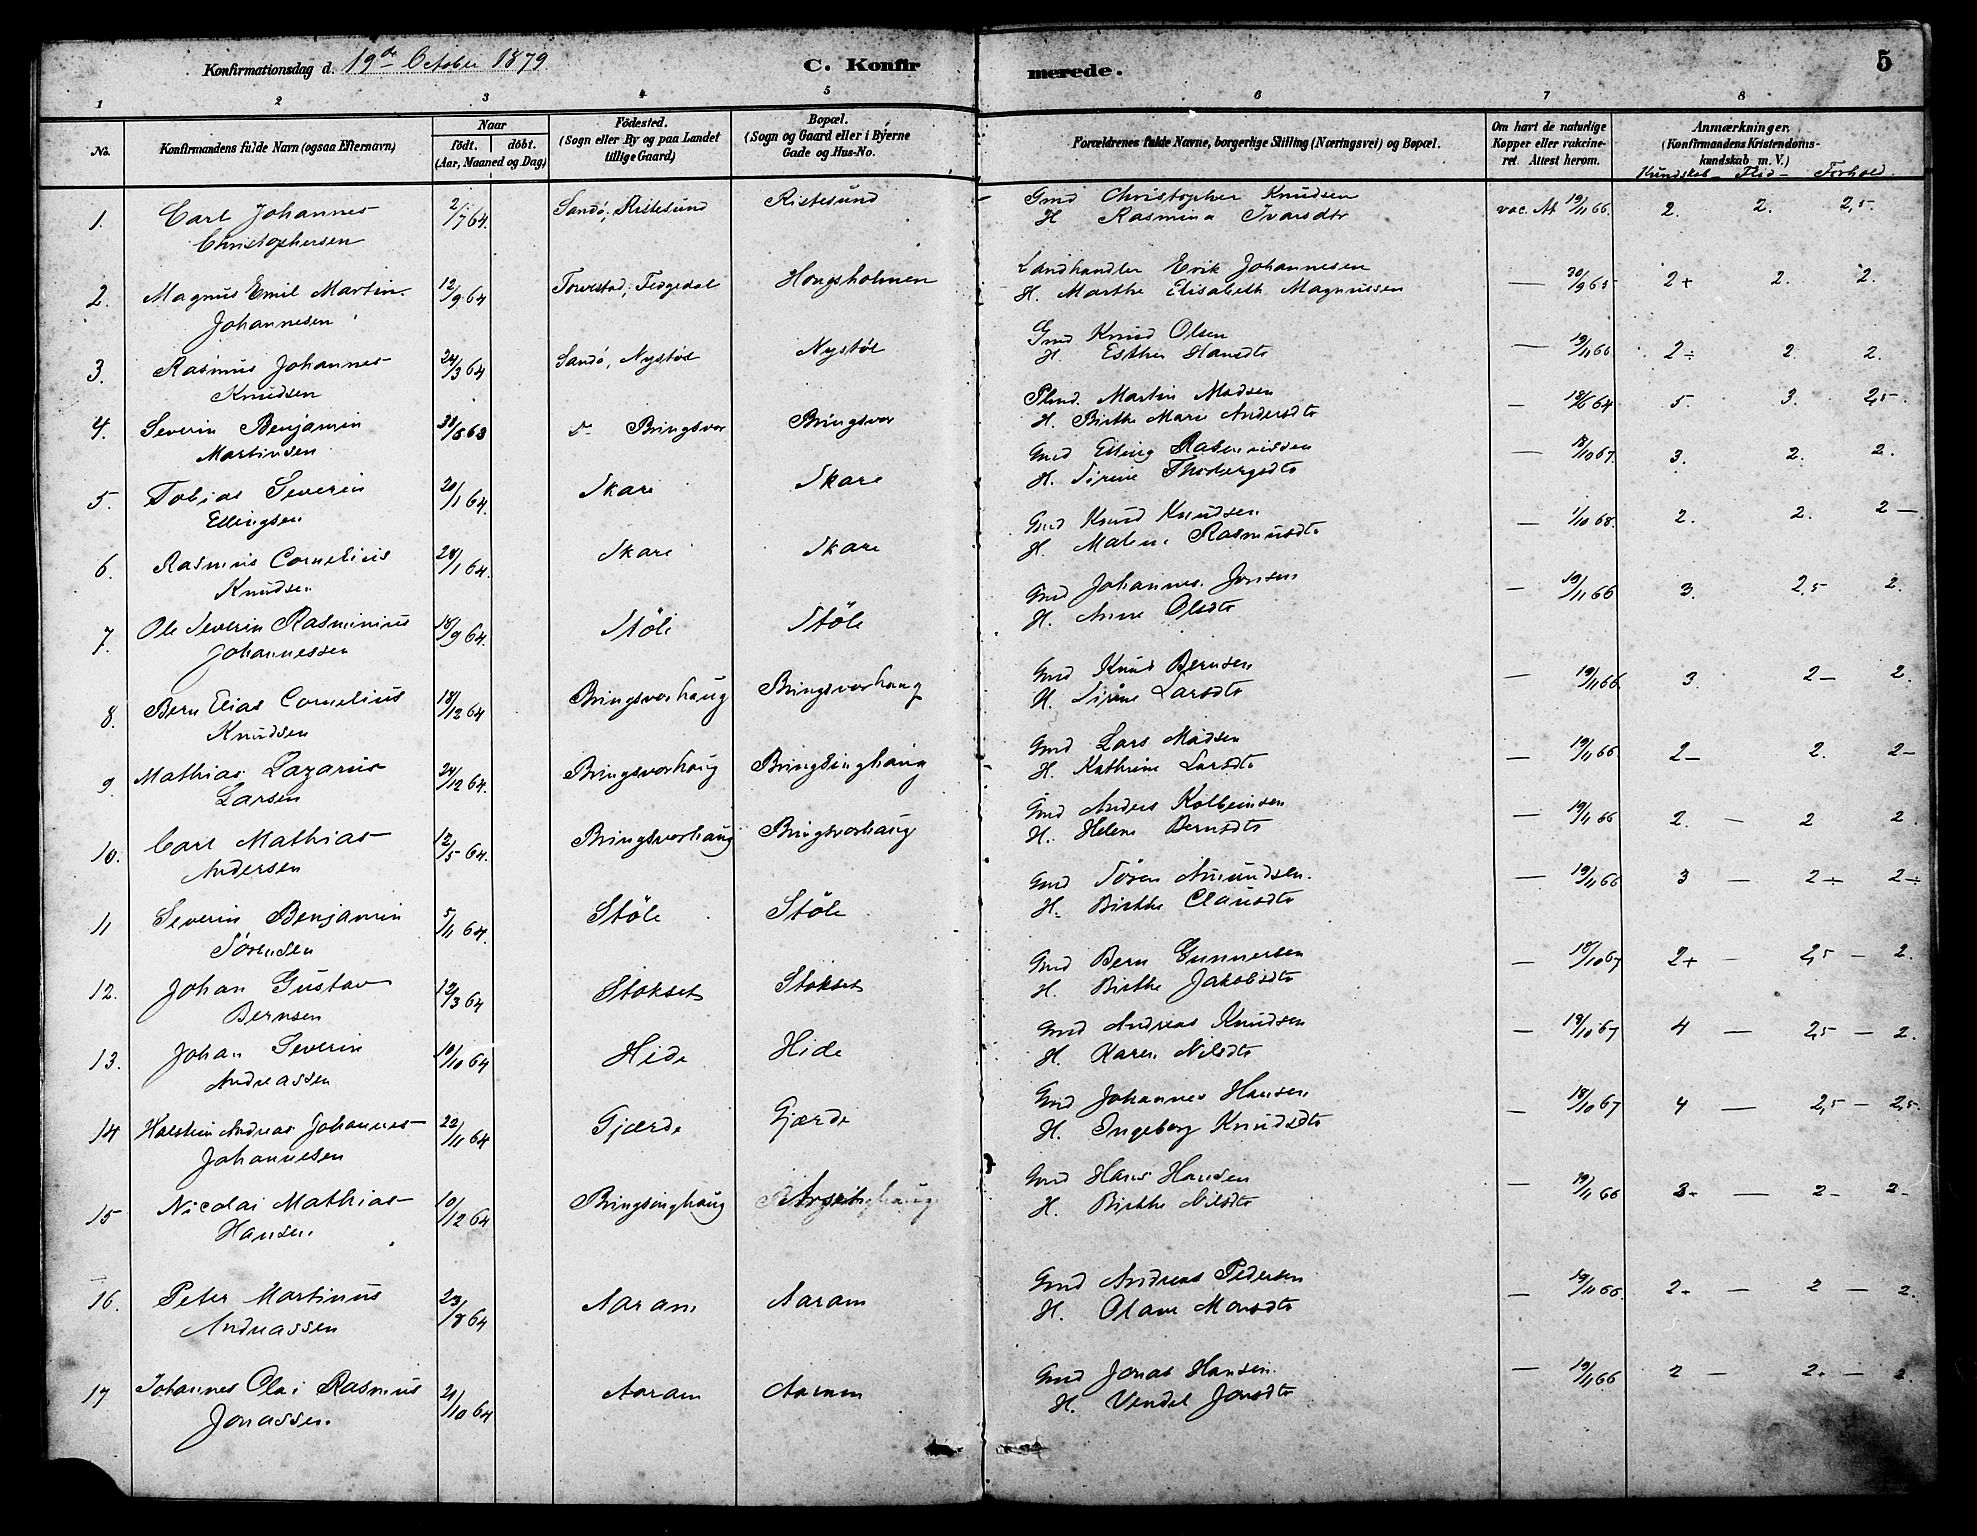 Konfirmationsdag d. 19de October 1879
C. Konfirmerede.
5
1 2 3 4 5 6 7 8
No.
Konfirmandens fulde Navn (ogsaa Efternavn)
Naar
Födt. döbt.
(Aar, Maaned og Dag)
Födested.
(Sogn eller By og paa Landet
tillige Gaard)
Bopæl.
(Sogn og Gaard eller i Byerne
Gade og Hus-No.
Forældrenes fulde Navne, borgerlige Stilling (Næringsvei) og Bopæl.
Om havt de naturlige
Kopper eller vakcine-
ret. Attest herom.
Anmærkninger.
(Konfirmandens Kristendoms-
kundskab m. V.)
Kundskab – Flid – Forhold.
1. Carl Johannes 2/7 64. Sandö, Ristesund Ristesund Gmd Christopher Knudsen vac. At 19/11 66. 2. 2. 2,5.
Christophersen H Rasmina Ivarsdtr
2. Magnus Emil Martin 12/9 64 Torvestad, Feigedal Hongsholmen Landhandler Erik Johannesen — 30/9 65 2+ 2. 2.
Johannesen H. Marthe Elisabeth Magnussen
3. Rasmus Johannes 24/3 64 Sandö, Nystöl Nystöl Gmd Knud Olsen — 19/11 66 2÷ 2. 2.
Knudsen H. Esther Hansdtr
4. Severin Benjamin 30/8 63 Do Bringsvor Bringsvor Plmd. Martin Madsen — 13/6 64 5. 3. 2,5.
Martinsen H. Birthe Marie Andersdtr
5. Tobias Severin 20/1 64. Skare Skare Gmd Elling Rasmussen — 18/10 67. 3. 2. 2.
Ellingsen H. Sirine Thorbergsdtr
6. Rasmus Cornelius 28/1 64. Skare Skare Gmd Knud Knudsen — 1/10 68. 2. 2. 2 —
Knudsen H. Malene Rasmusdtr
7. Ole Severin Rasminius 18/9 64. Stöle Stöle Gmd Johannes Jonsen — 19/11 66 3. 2,5 2.
Johannessen H. Anne Olsdtr
8. Bern Elias Cornelius 18/12 64 Bringsvorhaug Bringsvorhaug Gmd Knud Bernsen — 19/11 66. 3. 2 — 2.
Knudsen H. Sirine Larsdtr
9. Mathias Lazarus 24/12 64. Bringsvorhaug Bringsinghaug Gmd Lars Madsen — 19/11 66 2 — 2. 2 —
Larsen H. Kathrine Larsdtr
10. Carl Mathias 12/5 64. Bringsvorhaug Bringsvorhaug Gmd Anders Kolbeinsen — 19/11 66 2. — 2 2.
Andersen H. Helene Bernsdtr
11 Severin Benjamin 5/11 64. Stöle Stöle Gmd Sören Amundsen. — 19/11 66 3 — 2÷ 2÷
Sörensen H. Birthe Clausdtr
12. Johan Gustav 12/3 64 Stokset Stokset Gmd Bern Gunnersen — 18/10 67 2+ — 2,5 — 2.
Bernsen H. Birthe Jakobsdtr
13. Johan Severin 10/10 64 Hide Hide Gmd Andreas Knudsen — 18/10 67 4 — 2,5 — 2.
Andreassen H. Karen Nilsdtr
14 Holstein Andreas Johannes 22/11 64 Gjærde Gjærde Gmd Johannes Hansen — 18/10 67 4 — 2,5 — 2,5.
Johannesen H. Ingeborg Knudsdtr
15 Nicolai Mathias 10/12 64 Bringsinghaug Gmd Hans Hansen — 19/11 66 3+ — 2 — 2 —
Hansen H. Birthe Nilsdtr
16. Peter Martinus 23/8 64 Aaram Aaram Gmd Andreas Pedersen — 19/11 66. 2+ — 2 — 2.
Andreassen H. Olave Monsdtr
17 Johannes Olai Rasmus 21/10 64 Aaram Aaram Gmd Jonas Hansen — 19/11 66 2 — 2+ — 2.
Jonassen. H. Vendel Jonsdtr